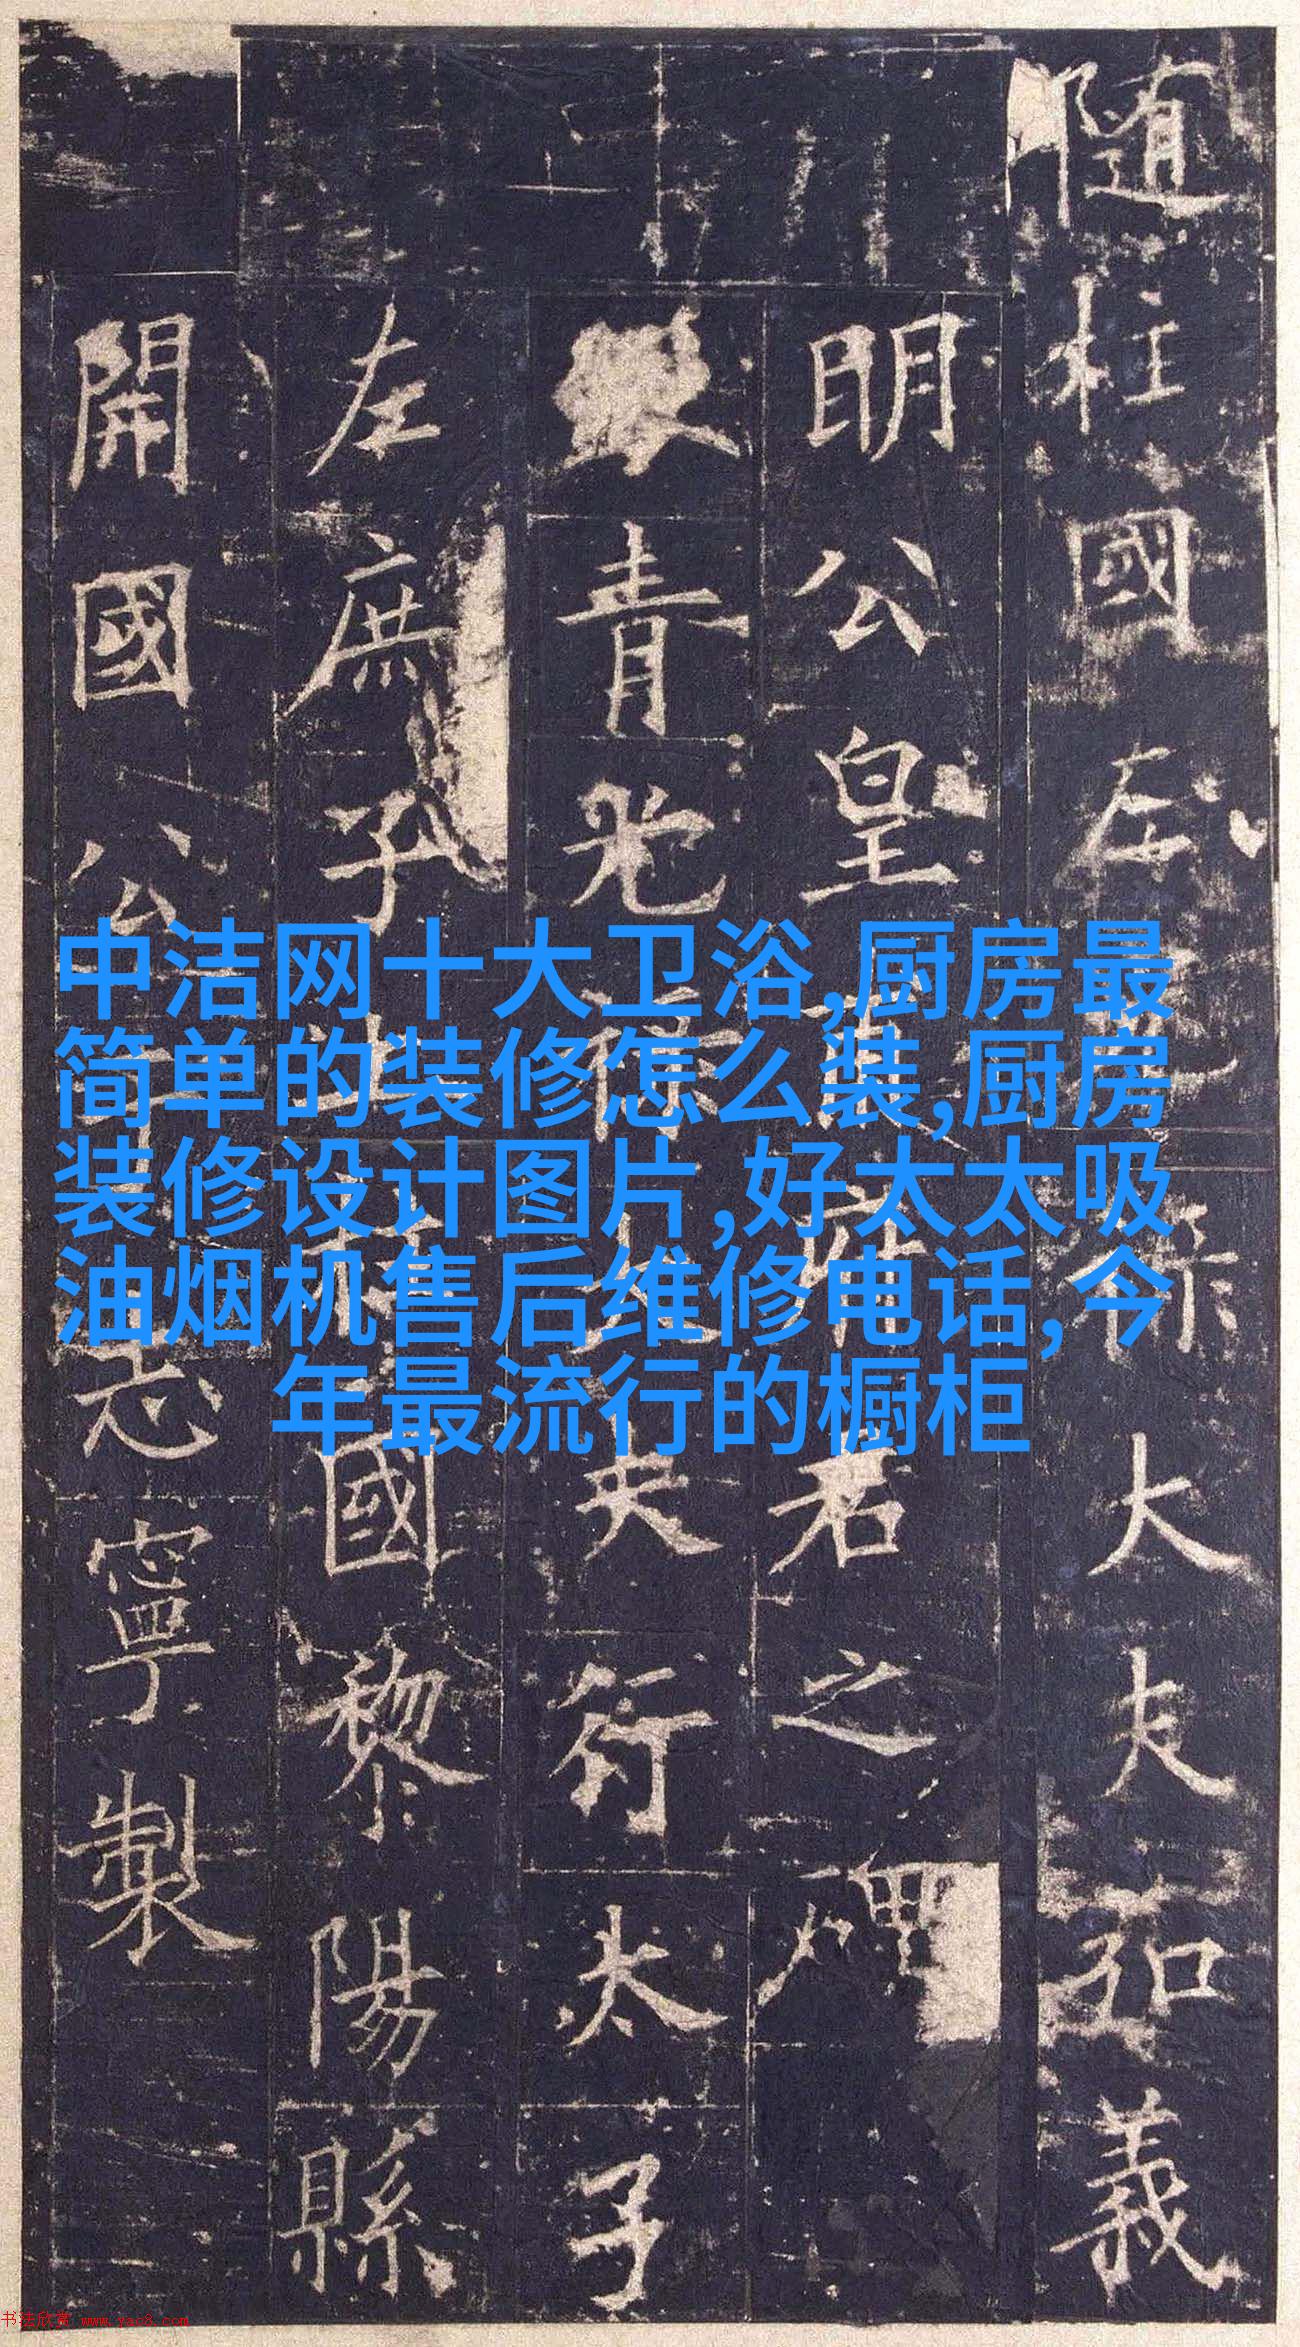 隨柱國左祿大夫弘義
明公皇府君之碑
青光祿大夫行太子
左庶子上柱國黎陽縣
開國公于志寧製
中洁网十大卫浴,厨房最
简单的装修怎么装,厨房
装修设计图片,好太太吸
油烟机售后维修电话,今
年最流行的橱柜
书法欣赏 www.yac8.com